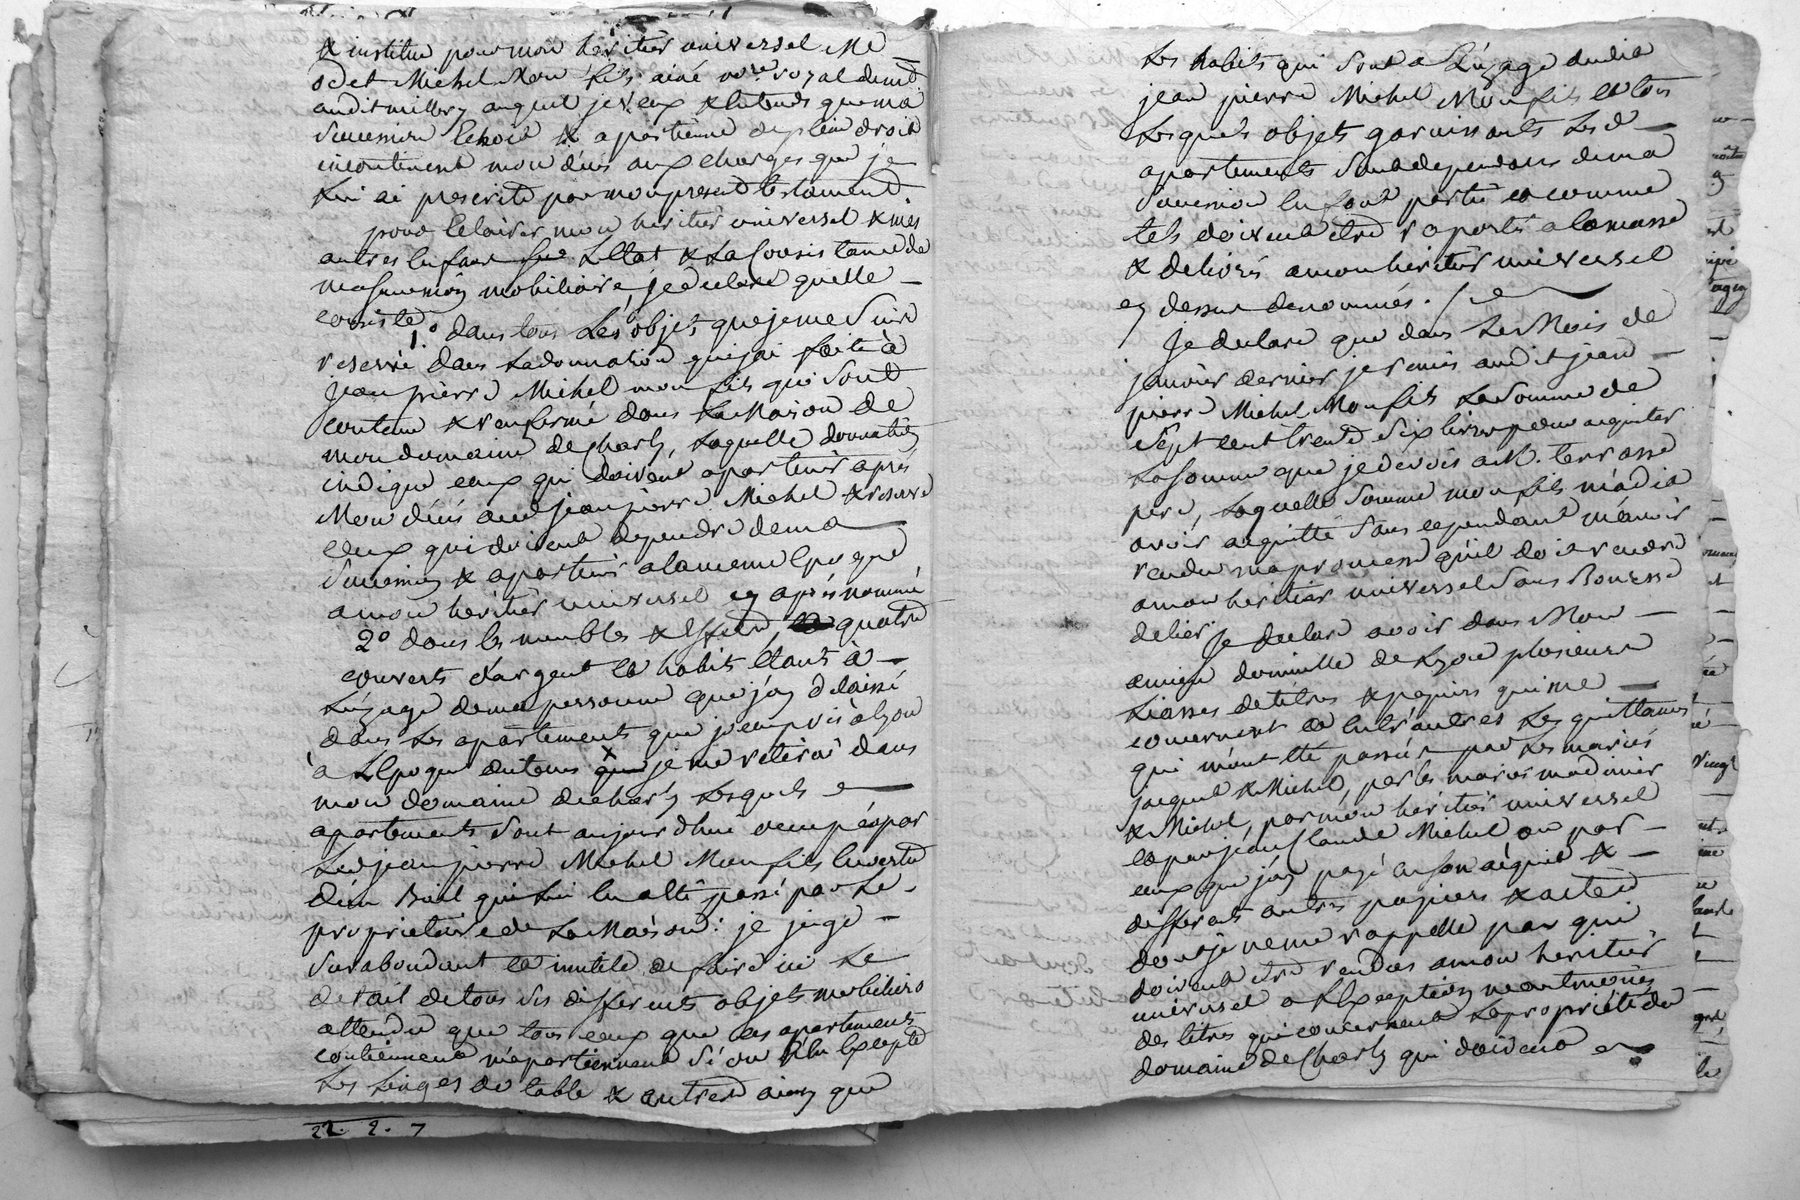 & institue pour mon héritier universel Me
odet Michel Mon fils ainé no.re royal demt
audit millery auquel je veux & entends que ma
succession Echoit & apartienne de plein droit
incontinent mon décès aux charges que je
lui ai prescrite par mon present testament
pour Eclairer mon heritier universel & mes
autres Enfans sur L'Etat & La Consistance de
ma succession mobiliaire, je declare quelle
consiste
1.º dans tous Les objets que je me suis
reservé dans La donnation que jai faite à
jean pierre Michel mon fils qui sont
contenu & renfermé dans La Maison de
mon domaine de Charly, Laquelle donnation
indique ceux qui doivent apartenir après
Mon décès aud jean pierre Michel & reserve
Ceux qui doivent dependre de ma
succession & apartenir a la meme Epoque
a mon heritier universel cy après nommé
2º dans les meubles & Effets, quatre
couverts d'argent et habits étant à
L'uzage de ma personne que j'ay delaissé
dans Les apartements que j'occupois à Lyon
à L'Epoque du tems que je me retirai dans
mon domaine de charly Lesquels
apartements sont aujourd'hui occupés par
Led jean pierre Michel Mon fils En vertu
d'un Bail qui Lui En a été passé par Le
proprietaire de La Maison : je juge
surabondant et inutile de faire ici Le
detail de tous ses differents objets mobiliers
attendu que tous ceux que ces apartements
contiennent m'apartiennent si on En Excepte
Les Linges de table & autres ainsy que
22. 2. 7
Les habits qui sont a L'uzage dudit
jean pierre Michel Mon fils et tous
Lesquels objets garnissants Lesd
apartements sont dependans de ma
succession En font partie et comme
tels doivent etre raportés a la masse
& delivrés a mon heritier universel
cy dessus denommés.
Je declare que dans Le Mois de
janvier dernier je remis audit jean
pierre Michel Mon fils La somme de
sept cent trente six livres pour acquitter
La somme que je devois a M. terrasse
pere, Laquelle somme mon fils m'a dit
avoir acquitté sans cependant m'avoir
rendu ma promesse qu'il doit rendre
a mon heritier universel sans Bourse
delier. Je declare avoir dans Mon
ancien domicille de Lyon plusieurs
Liasses de titres & papiers qui me
concernent et Entr'autres Les quittances
qui m'ont été passées par Les mariés
jacquet & Michel, par les mariés madinier
& Michel, par mon héritier universel
et par jean Claude Michel ou par
ceux que j'ay payé En son acquit &
differents autres papiers & actes
dont je ne me rappelle pas qui
doivent etre rendus a mon heritier
universel a L'Exception neantmoins
des titres qui concernent La propriété du
domaine de Charly qui doivent